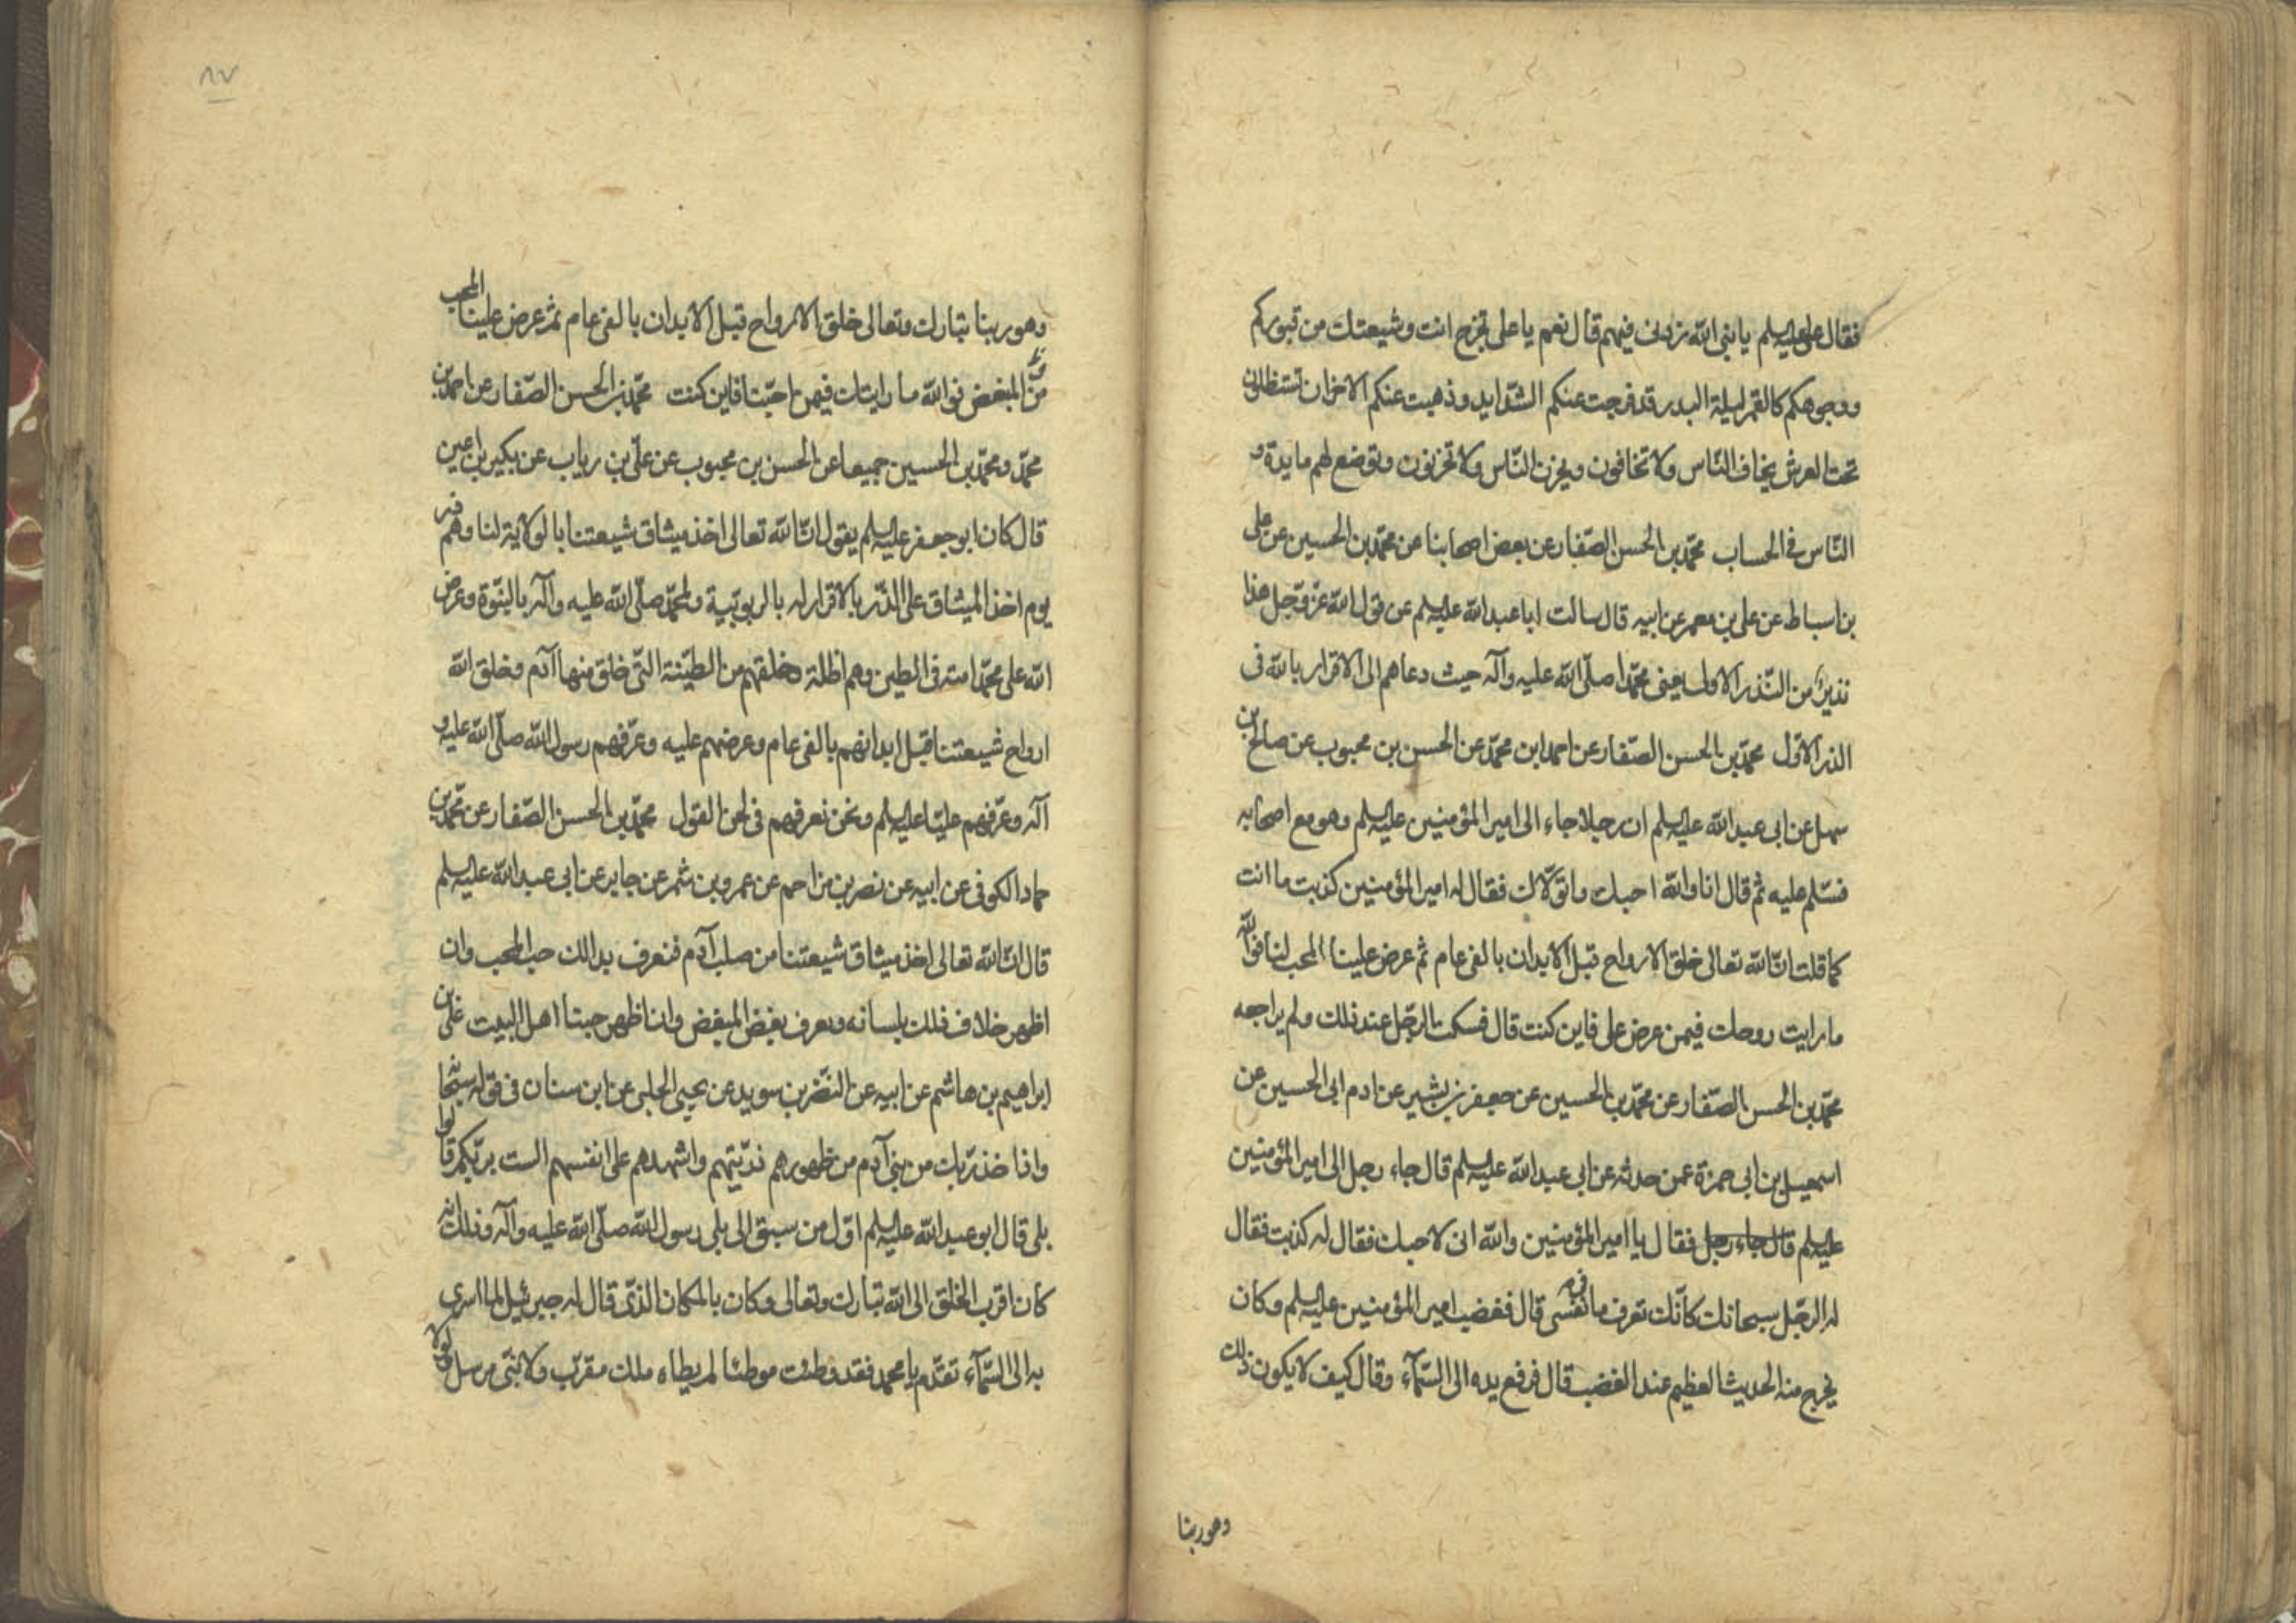 فقال على عليه السلم يا بنى الله زدنى فيهم قال نعم يا على تخرج انت وشيعتك من قبوركم
ووجوهكم كالقمر ليلة البدر قد فرجت عنكم الشدايد وذهبت عنكم الاحزان تستظلون
تحت العرش يخاف الناس ولا تخافون ويحزن الناس ولا تحزنون وتوضع لهم مايدة و
الناس فى الحساب محمد بن الحسن الصفار عن بعض اصحابنا عن محمد بن الحسين عن على
بن اسباط عن على بن معمر عن ابيه قال سالت ابا عبد الله عليه السلم عن قول الله عز وجل هذا
نذير من النذر الاولى يعنى محمدا صلى الله عليه وآله حيث دعاهم الى الاقرار بالله فى
الذر الاول محمد بن الحسن الصفار عن احمد ابن محمد عن الحسن بن محبوب عن صالح بن
سهل عن ابى عبد الله عليه السلم ان رجلا جاء الى امير المؤمنين عليه السلم وهو مع اصحابه
فسلم عليه ثم قال انا والله احبك واتولاك فقال له امير المؤمنين كذبت ما انت
كما قلت ان الله تعالى خلق الارواح قبل الابدان بالفى عام ثم عرض علينا المحب لنا فوالله
ما رايت روحك فيمن عرض على فاين كنت قال فسكت الرجل عند ذلك ولم يراجعه
محمد بن الحسن الصفار عن محمد بن الحسين عن جعفر بن بشير عن ادم ابى الحسين عن
اسمعيل بن ابى حمزة عمن حدثه عن ابى عبد الله عليه السلم قال جاء رجل الى امير المؤمنين
عليه السلم قال جاء رجل فقال يا امير المؤمنين والله انى لاحبك فقال له كذبت فقال
له الرجل سبحانك كانك تعرف ما فى نفسى قال فغضب امير المؤمنين عليه السلم وكان
يخرج منه الحديث العظيم عند الغضب قال فرفع يده الى السمآء وقال كيف لا يكون ذلك
وهو ربنا
٨٧
وهو ربنا تبارك وتعالى خلق الارواح قبل الابدان بالفى عام ثم عرض علينا المحب
من المبغض فوالله ما رايتك فيمن احبنا فاين كنت محمد بن الحسن الصفار عن احمد بن
محمد ومحمد بن الحسين جميعا عن الحسن بن محبوب عن على بن رياب عن بكير بن اعين
قال كان ابو جعفر عليه السلم يقول ان الله تعالى اخذ ميثاق شيعتنا بالولاية لنا وهم ذر
يوم اخذ الميثاق على الذر بالاقرار له بالربوبية ولمحمد صلى الله عليه وآله بالنبوة وعرض
الله على محمد امته فى الطين وهم اظلة وخلقهم من الطينة التى خلق منها آدم وخلق الله
ارواح شيعتنا قبل ابدانهم بالفى عام وعرضهم عليه وعرفهم رسول الله صلى الله عليه و
آله وعرفهم عليا عليه السلم ونحن نعرفهم فى لحن القول محمد بن الحسن الصفار عن محمد بن
حماد الكوفى عن ابيه عن نصر بن مزاحم عن عمرو بن شمر عن جابر عن ابى عبد الله عليه السلم
قال ان الله تعالى اخذ ميثاق شيعتنا من صلب آدم فنعرف بذالك حب المحب وان
اظهر خلاف ذلك بلسانه ونعرف بغض المبغض وان اظهر حبنا اهل البيت على بن
ابراهيم بن هاشم عن ابيه عن النضر بن سويد عن يحيى الحلبى عن ابن سنان فى قوله سبحانه
واذ اخذ ربك من بنى آدم من ظهورهم ذريتهم واشهدهم على انفسهم الست بربكم قالوا
بلى قال ابو عبد الله عليه السلم اول من سبق الى بلى رسول الله صلى الله عليه وآله وذلك انه
كان اقرب الخلق الى الله تبارك وتعالى وكان بالمكان الذى قال له جبرئيل لما اسرى
به الى السمآء تقدم يا محمد فقد وطئت موطئا لم يطاه ملك مقرب ولا نبى مرسل ولولا